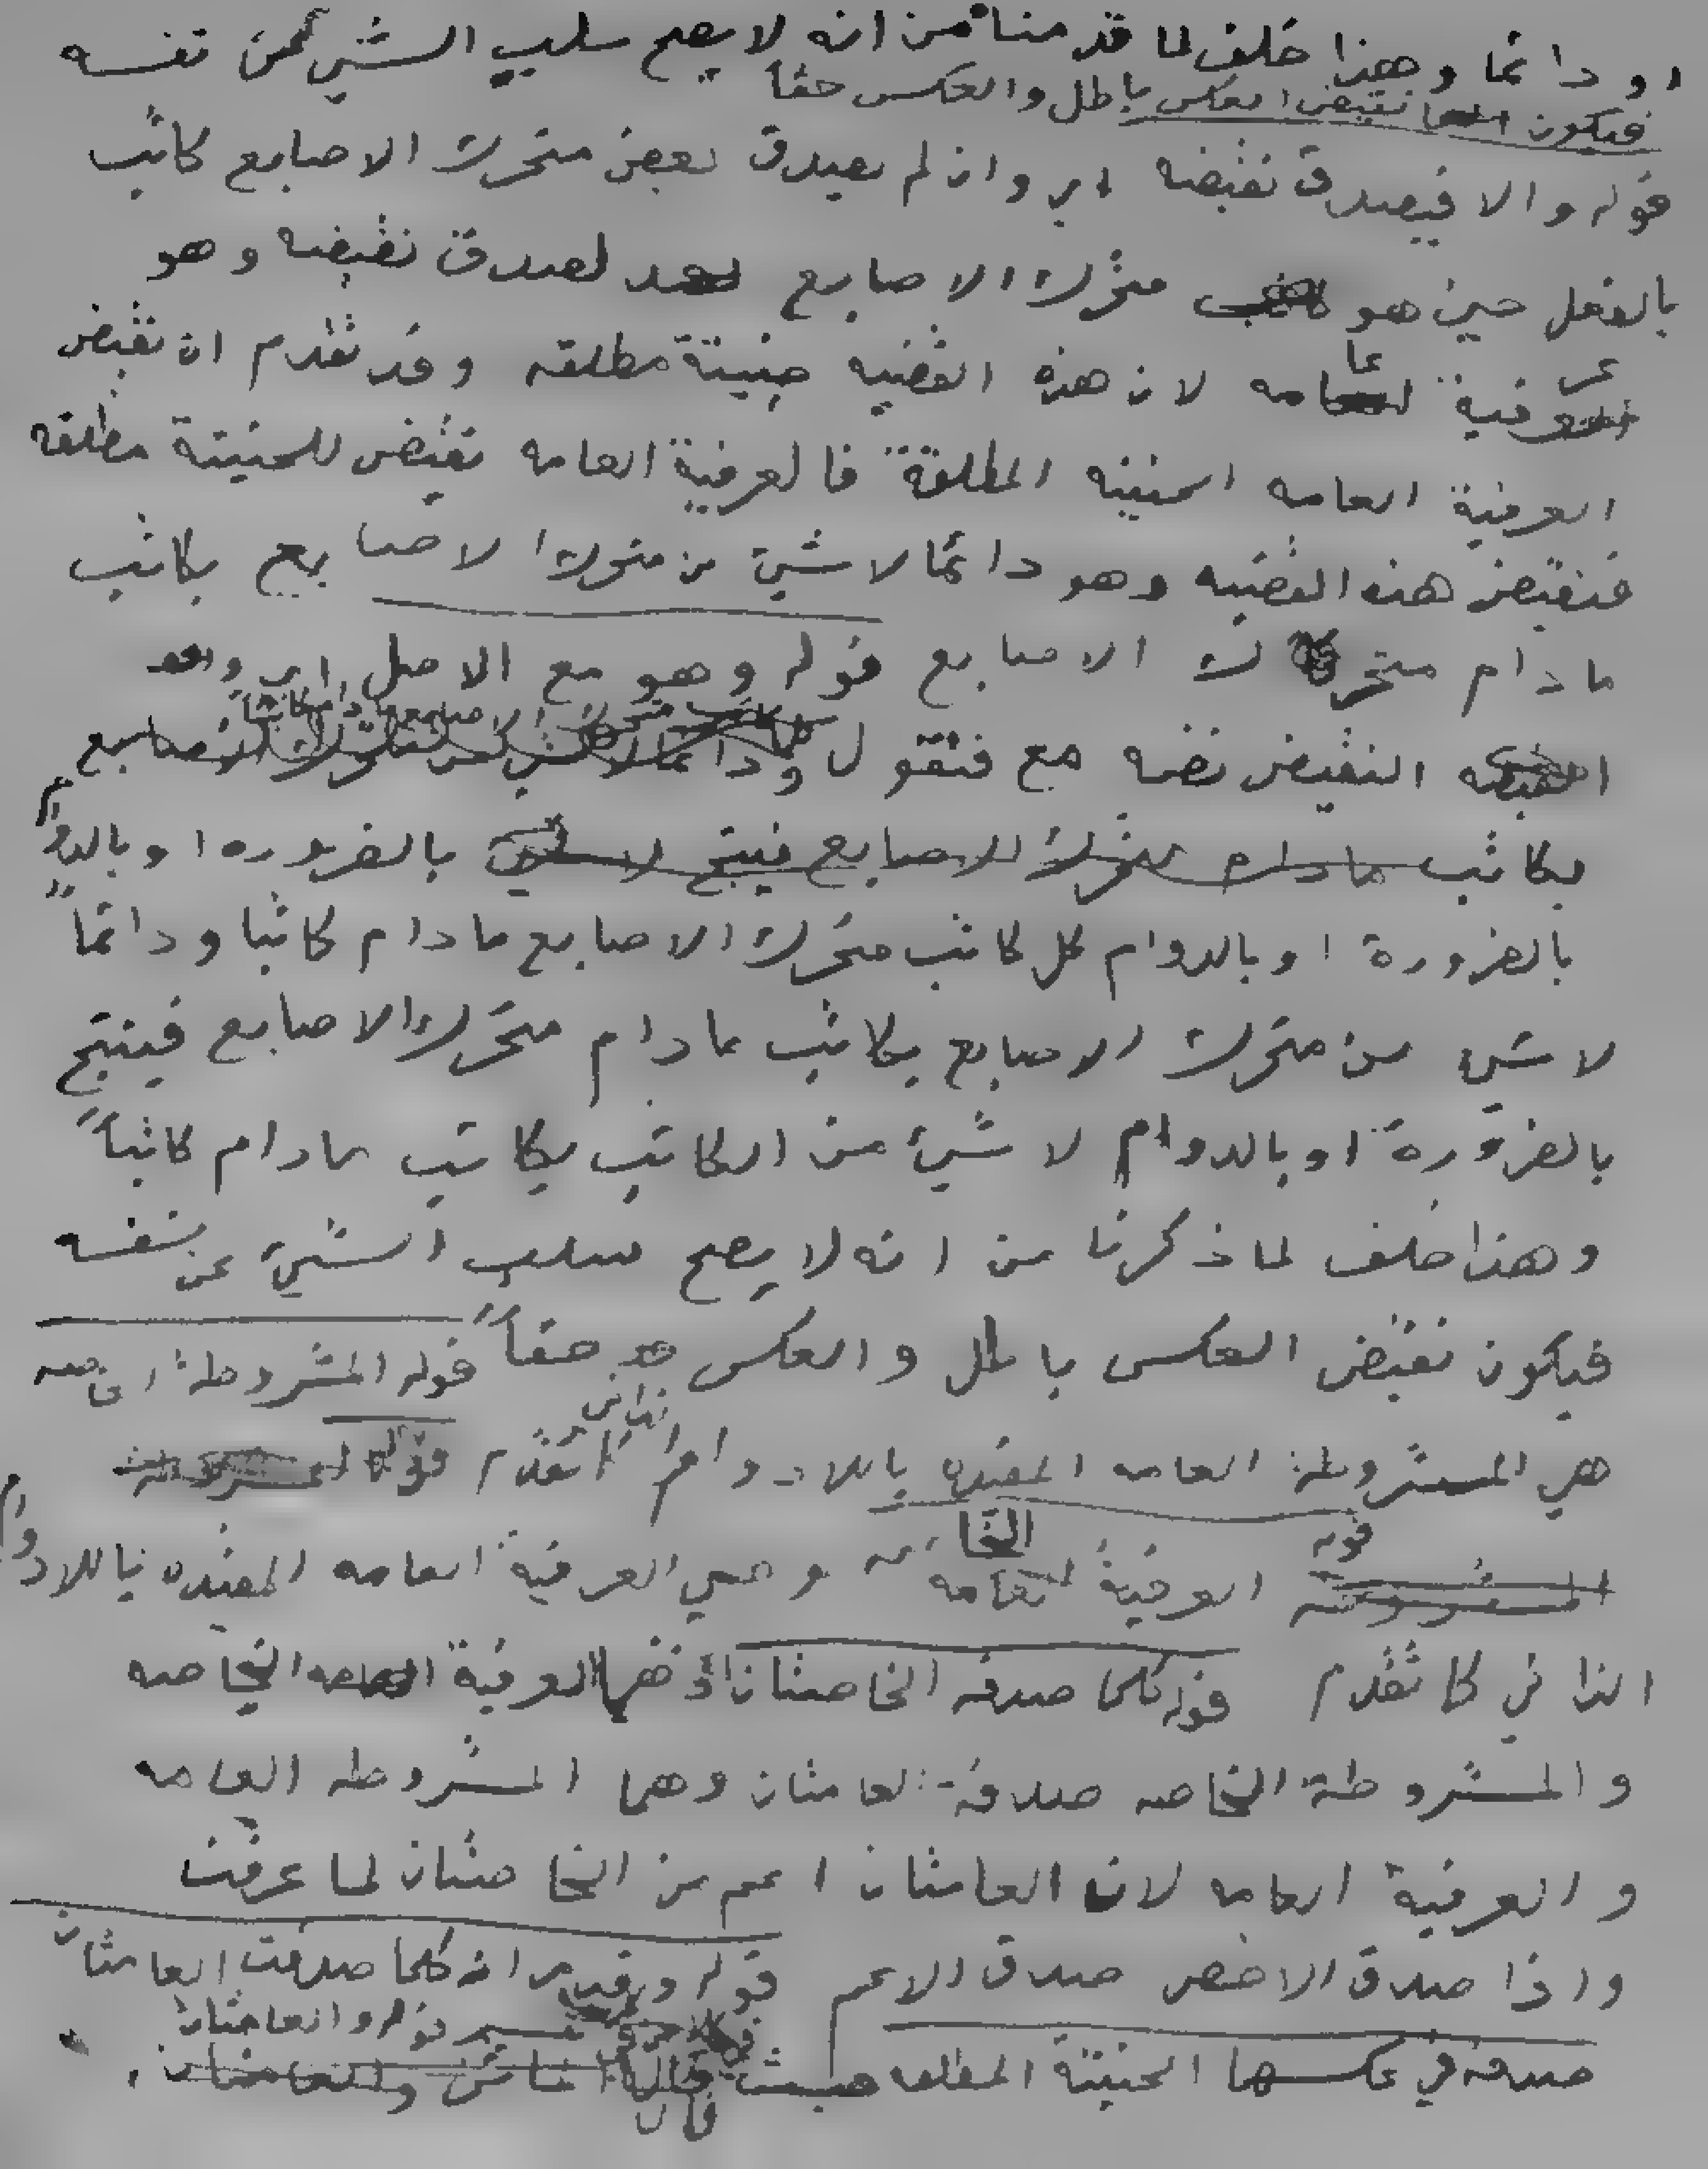 او دائما وهذا خلف لما قدمناه من انه لا يصح سلب الشيئ عن نفسه
فيكون نقيض العكس باطل والعكس حقاً
قوله والا فيصدق نقيضه اي وان لم يصدق بعض متحرك الاصابع كاتب
بالفعل حين هو متحرك الاصابع لصدق نقيضه وهو
عرفية عامه لان هذه القضيه حينية مطلقه وقد تقدم ان نقيض
العرفية العامه الحينيه المطلقة فالعرفية العامه نقيض للحينية مطلقه
فنقيض هذه القضيه وهو دائما لا شيئ من متحرك الاصابع بكاتب
ما دام متحرك الاصابع قوله وهو مع الاصل اي وهو
النقيض نضمه مع فنقول
بكاتب مادام متحرك الاصابع فينتج لا شيئ بالضروره او بالدوام
بالضرورة او بالدوام كل كاتب متحرك الاصابع مادام كاتبا ودائماً
لا شيئ من متحرك الاصابع بكاتب مادام متحرك الاصابع فينتج
بالضرورة او بالدوام لا شيئ من الكاتب بكاتب مادام كاتباً
وهذا خلف لما ذكرنا من انه لا يصح سلب الشيئ عن نفسه
فيكون نقيض العكس باطل والعكس حقاً قوله المشروطة الخاصه
هي المشروطة العامه المقيده باللادوام الذاتي كما تقدم
قوله العرفية الخاصه وهي العرفية العامه المقيده باللادوام
الذاتي كما تقدم قوله كلما صدقة الخاصتان العرفية الخاصه
والمشروطة الخاصه صدقة العامتان وهما المشروطه العامه
والعرفية العامه لان العامتان اعم من الخاصتان لما عرفت
واذا صدق الاخص صدق الاعم قوله وقد مر انه كلما صدقت العامتان
صدقة في عكسها الحينية المطلقه حيث قال
قوله والعامتان